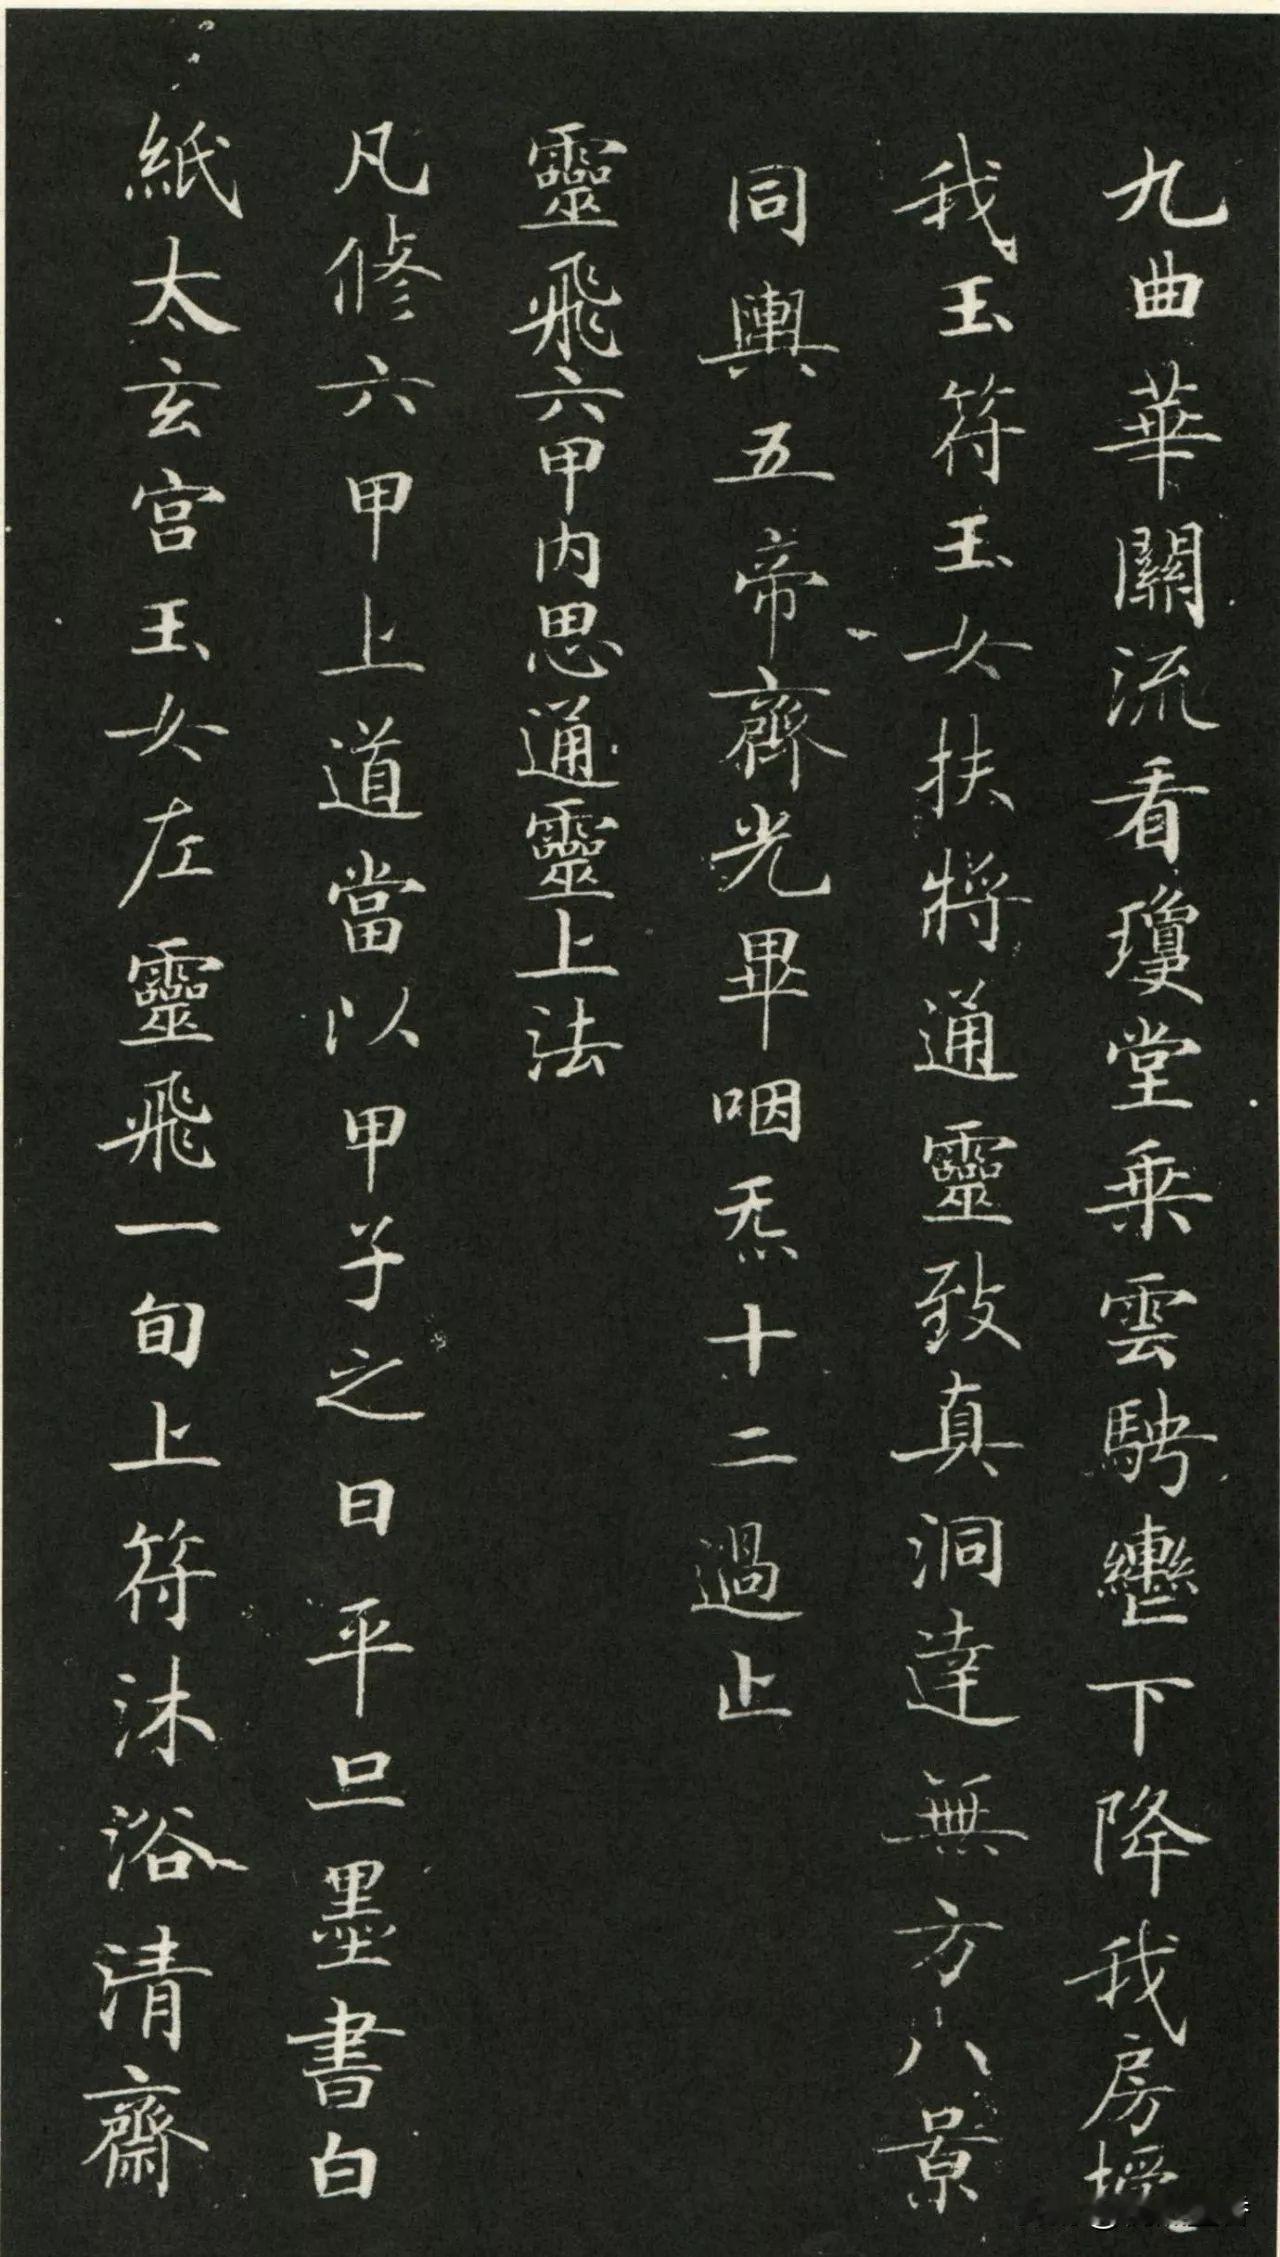 九曲華關流看瓊堂乗雲騁轡下降我房授
我玉符玉女扶將通靈致真洞達無方八景
同輿五帝齊光畢咽炁十二過止
靈飛六甲內思通靈上法
凡修六甲上道當以甲子之日平旦墨書白
紙太玄宮玉女左靈飛一旬上符沐浴清齋